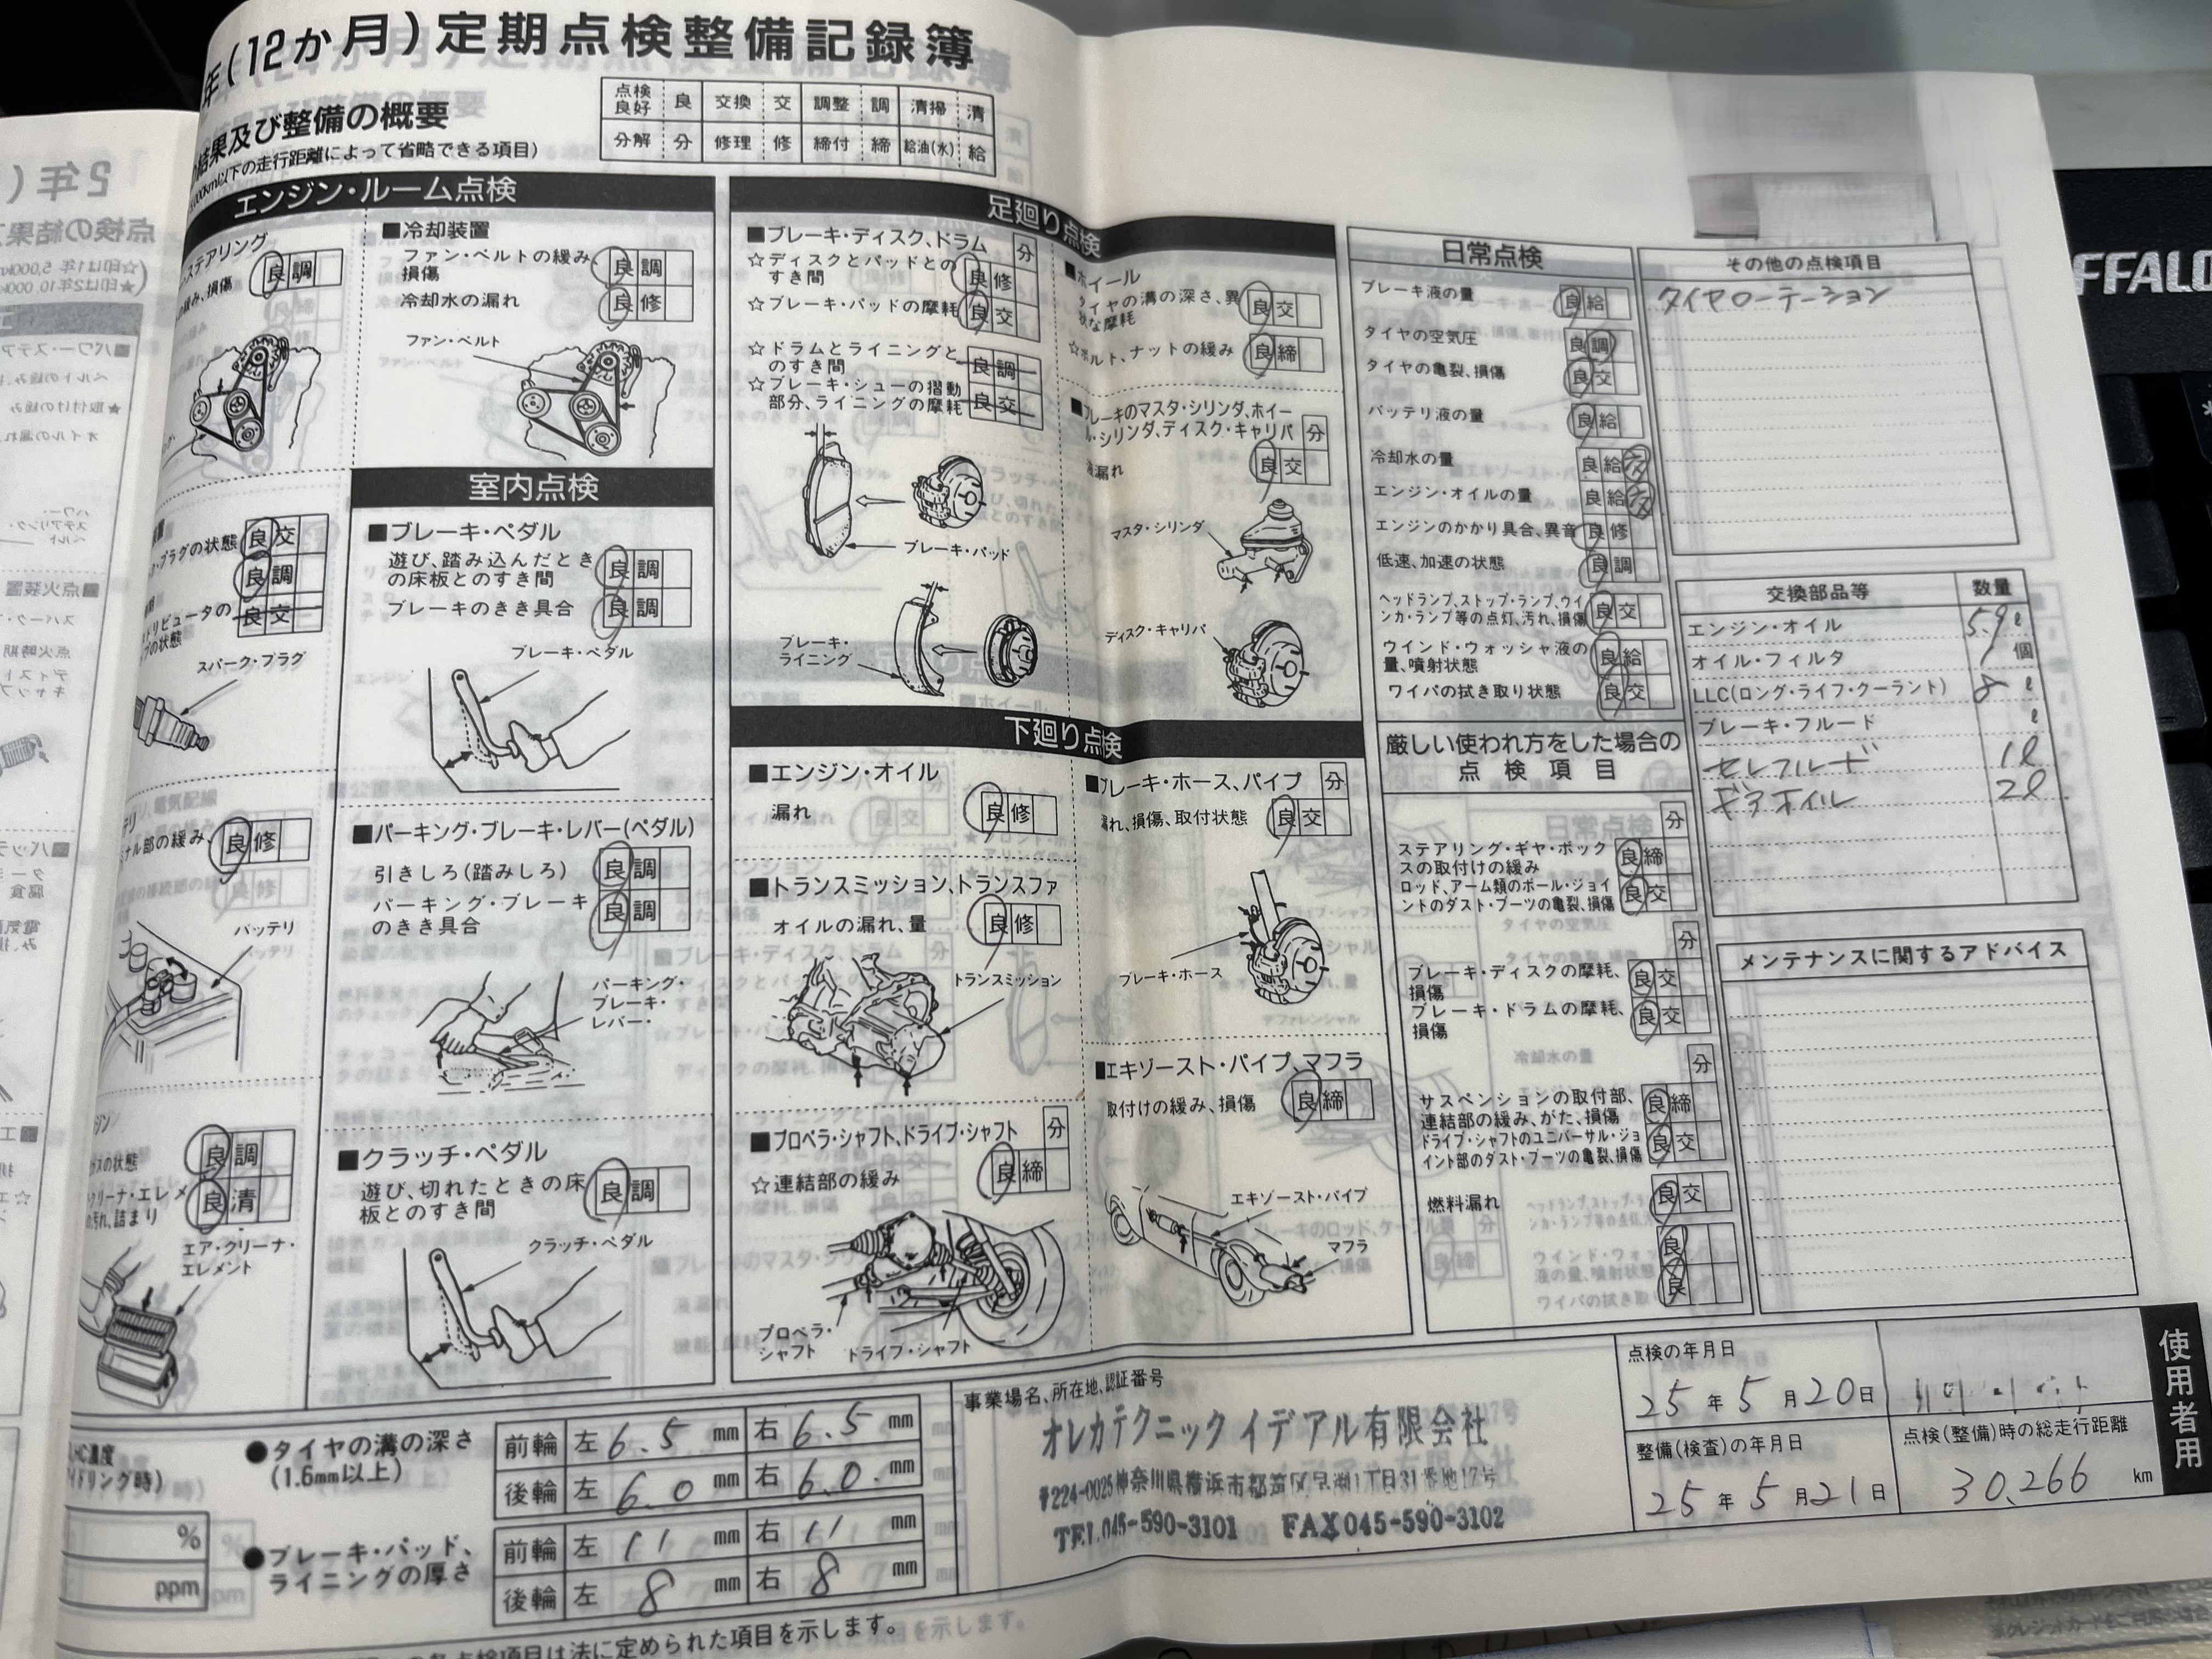 年(12か月)定期点検整備記録簿
結果及び整備の概要
以下の走行距離によって省略できる項目)
点検良好 良 交換 交 調整 調 清掃 清
分解 分 修理 修 締付 締 給油(水) 給
エンジン・ルーム点検
ステアリング
緩み、損傷 良 調
■冷却装置
ファン・ベルトの緩み、損傷 良 調
冷却水の漏れ 良 修
ファン・ベルト
プラグの状態 良 交
良 調
良 交
の状態
スパーク・プラグ
ナル部の緩み、 良 修
バッテリ
の状態 良 調
クリーナ・エレメ
の汚れ、詰まり 良 清
エア・クリーナ・
エレメント
室内点検
■ブレーキ・ペダル
遊び、踏み込んだとき
の床板とのすき間 良 調
ブレーキのきき具合 良 調
ブレーキ・ペダル
■パーキング・ブレーキ・レバー(ペダル)
引きしろ(踏みしろ) 良 調
パーキング・ブレーキ
のきき具合 良 調
パーキング・
ブレーキ・
レバー・
■クラッチ・ペダル
遊び、切れたときの床
板とのすき間 良 調
クラッチ・ペダル
足廻り点検
■ブレーキ・ディスク、ドラム 分
☆ディスクとパッドとの
すき間 良 修
☆ブレーキ・パッドの摩耗 良 交
☆ドラムとライニングと
のすき間 良 調
☆ブレーキ・シューの摺動
部分、ライニングの摩耗 良 交
ブレーキ・パッド
ブレーキ・
ライニング
■ホイール
タイヤの溝の深さ、異
状な摩耗 良 交
☆ボルト、ナットの緩み 良 締
■ブレーキのマスタ・シリンダ、ホイー
ル・シリンダ、ディスク・キャリパ 分
液漏れ 良 交
マスタ・シリンダ
ディスク・キャリパ
下廻り点検
■エンジン・オイル
漏れ 良 修
■トランスミッション、トランスファ
オイルの漏れ、量 良 修
トランスミッション
■プロペラ・シャフト、ドライブ・シャフト 分
☆連結部の緩み 良 締
プロペラ・
シャフト
ドライブ・シャフト
■ブレーキ・ホース、パイプ 分
漏れ、損傷、取付状態 良 交
ブレーキ・ホース
■エキゾースト・パイプ、マフラ
取付けの緩み、損傷 良 締
エキゾースト・パイプ
マフラ
日常点検
ブレーキ液の量 良 給
タイヤの空気圧 良 調
タイヤの亀裂、損傷 良 交
バッテリ液の量 良 給
冷却水の量 良 給 交
エンジン・オイルの量 良 給 交
エンジンのかかり具合、異音 良 修
低速、加速の状態 良 調
ヘッドランプ、ストップ・ランプ、ウイ
ンカ・ランプ等の点灯、汚れ、損傷 良 交
ウインド・ウォッシャ液の
量、噴射状態 良 給
ワイパの拭き取り状態 良 交
厳しい使われ方をした場合の
点検項目
分
ステアリング・ギヤ・ボック
スの取付けの緩み 良 締
ロッド、アーム類のボール・ジョイ
ントのダスト・ブーツの亀裂、損傷 良 交
分
ブレーキ・ディスクの摩耗、
損傷 良 交
ブレーキ・ドラムの摩耗、
損傷 良 交
分
サスペンションの取付部、
連結部の緩み、がた、損傷 良 締
ドライブ・シャフトのユニバーサル・ジョ
イント部のダスト・ブーツの亀裂、損傷 良 交
燃料漏れ 良 交
良
良
その他の点検項目
タイヤローテーション
交換部品等 数量
エンジン・オイル 5.9 ℓ
オイル・フィルタ 1 個
LLC(ロング・ライフ・クーラント) 8 ℓ
ブレーキ・フルード ℓ
セレフルード 1ℓ
ギアオイル 2ℓ
メンテナンスに関するアドバイス
HC濃度
ドリング時)
%
ppm
●タイヤの溝の深さ
(1.6mm以上)
前輪 左 6.5 mm 右 6.5 mm
後輪 左 6.0 mm 右 6.0. mm
●ブレーキ・パッド、
ライニングの厚さ
前輪 左 11 mm 右 11 mm
後輪 左 8 mm 右 8 mm
点検項目は法に定められた項目を示します。
事業場名、所在地、認証番号
オレカテクニック イデアル有限会社
〒224-0025神奈川県横浜市都筑区早渕1丁目31番地17号
TEL045-590-3101 FAX045-590-3102
点検の年月日
25年5月20日
整備(検査)の年月日
25年5月21日
点検(整備)時の総走行距離
30,266 km
使用者用
FFALO